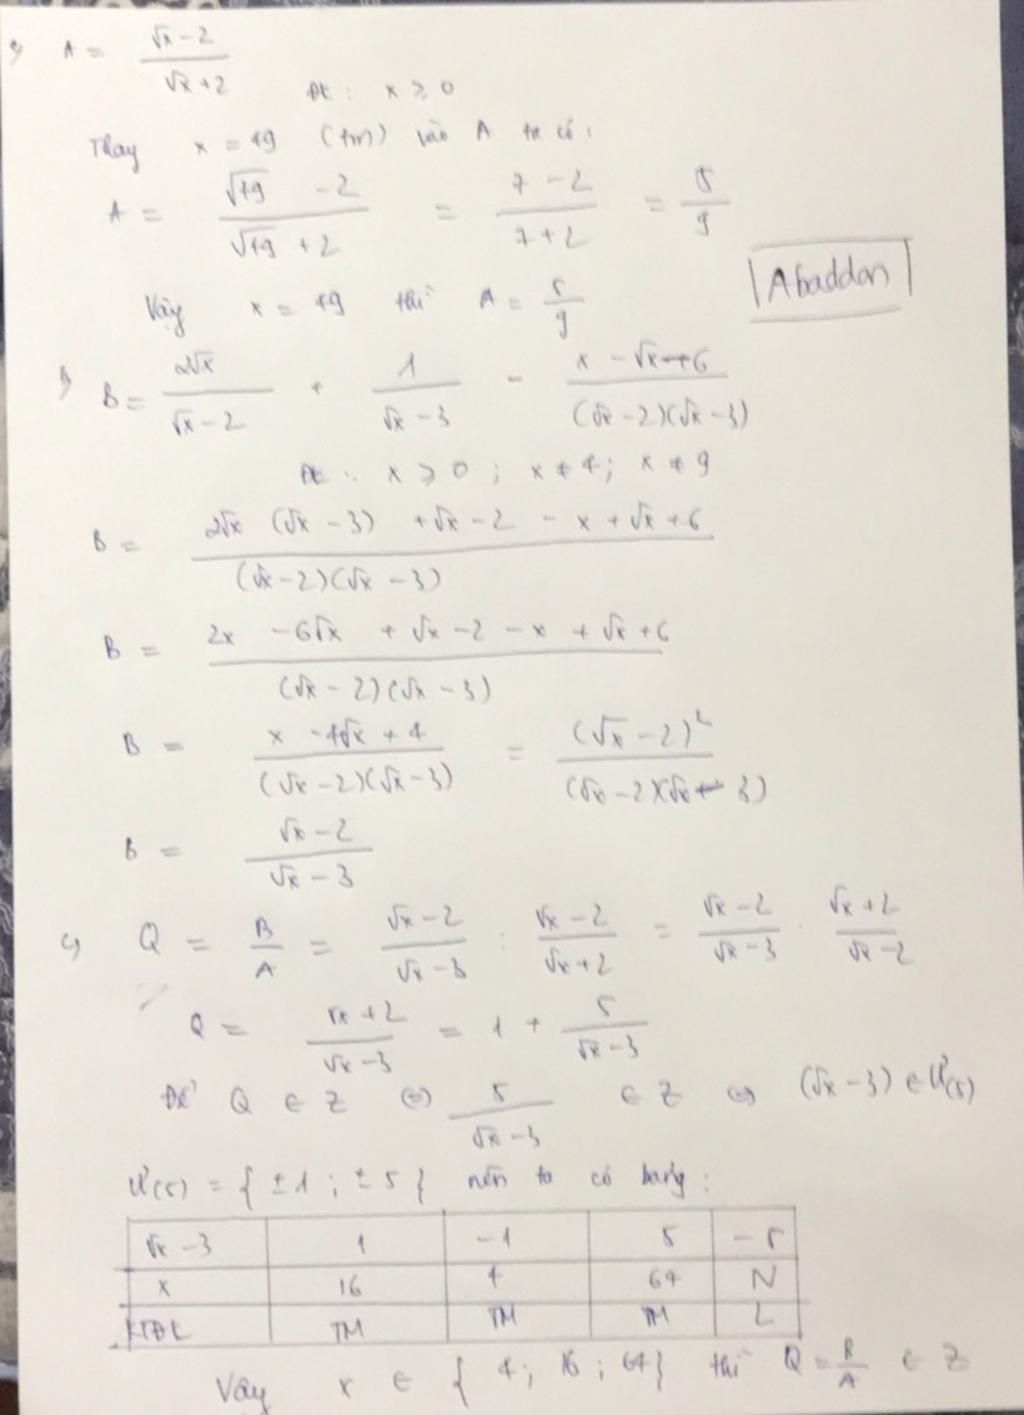 a) A = (√x - 2)/(√x + 2)
Đk : x ≥ 0
Thay x = 49 (tm) vào A ta có :
A = (√49 - 2)/(√49 + 2) = (7 - 2)/(7 + 2) = 5/9
Vậy x = 49 thì A = 5/9
|Abaddon|
b) B = 2√x/(√x - 2) + 1/(√x - 3) - (x - √x + 6)/((√x - 2)(√x - 3))
Đk : x ≥ 0 ; x ≠ 4 ; x ≠ 9
B = (2√x (√x - 3) + √x - 2 - x + √x + 6)/((√x - 2)(√x - 3))
B = (2x - 6√x + √x - 2 - x + √x + 6)/((√x - 2)(√x - 3))
B = (x - 4√x + 4)/((√x - 2)(√x - 3)) = (√x - 2)²/((√x - 2)(√x - 3))
B = (√x - 2)/(√x - 3)
c) Q = B/A = (√x - 2)/(√x - 3) : (√x - 2)/(√x + 2) = (√x - 2)/(√x - 3) . (√x + 2)/(√x - 2)
Q = (√x + 2)/(√x - 3) = 1 + 5/(√x - 3)
Để Q ∈ Z ⇔ 5/(√x - 3) ∈ Z ⇔ (√x - 3) ∈ Ư(5)
Ư(5) = { ±1 ; ±5 } nên ta có bảng :
√x - 3 1 -1 5 -5
x 16 4 64 N
KTĐK TM TM TM L
Vậy x ∈ { 4 ; 16 ; 64 } thì Q = B/A ∈ Z